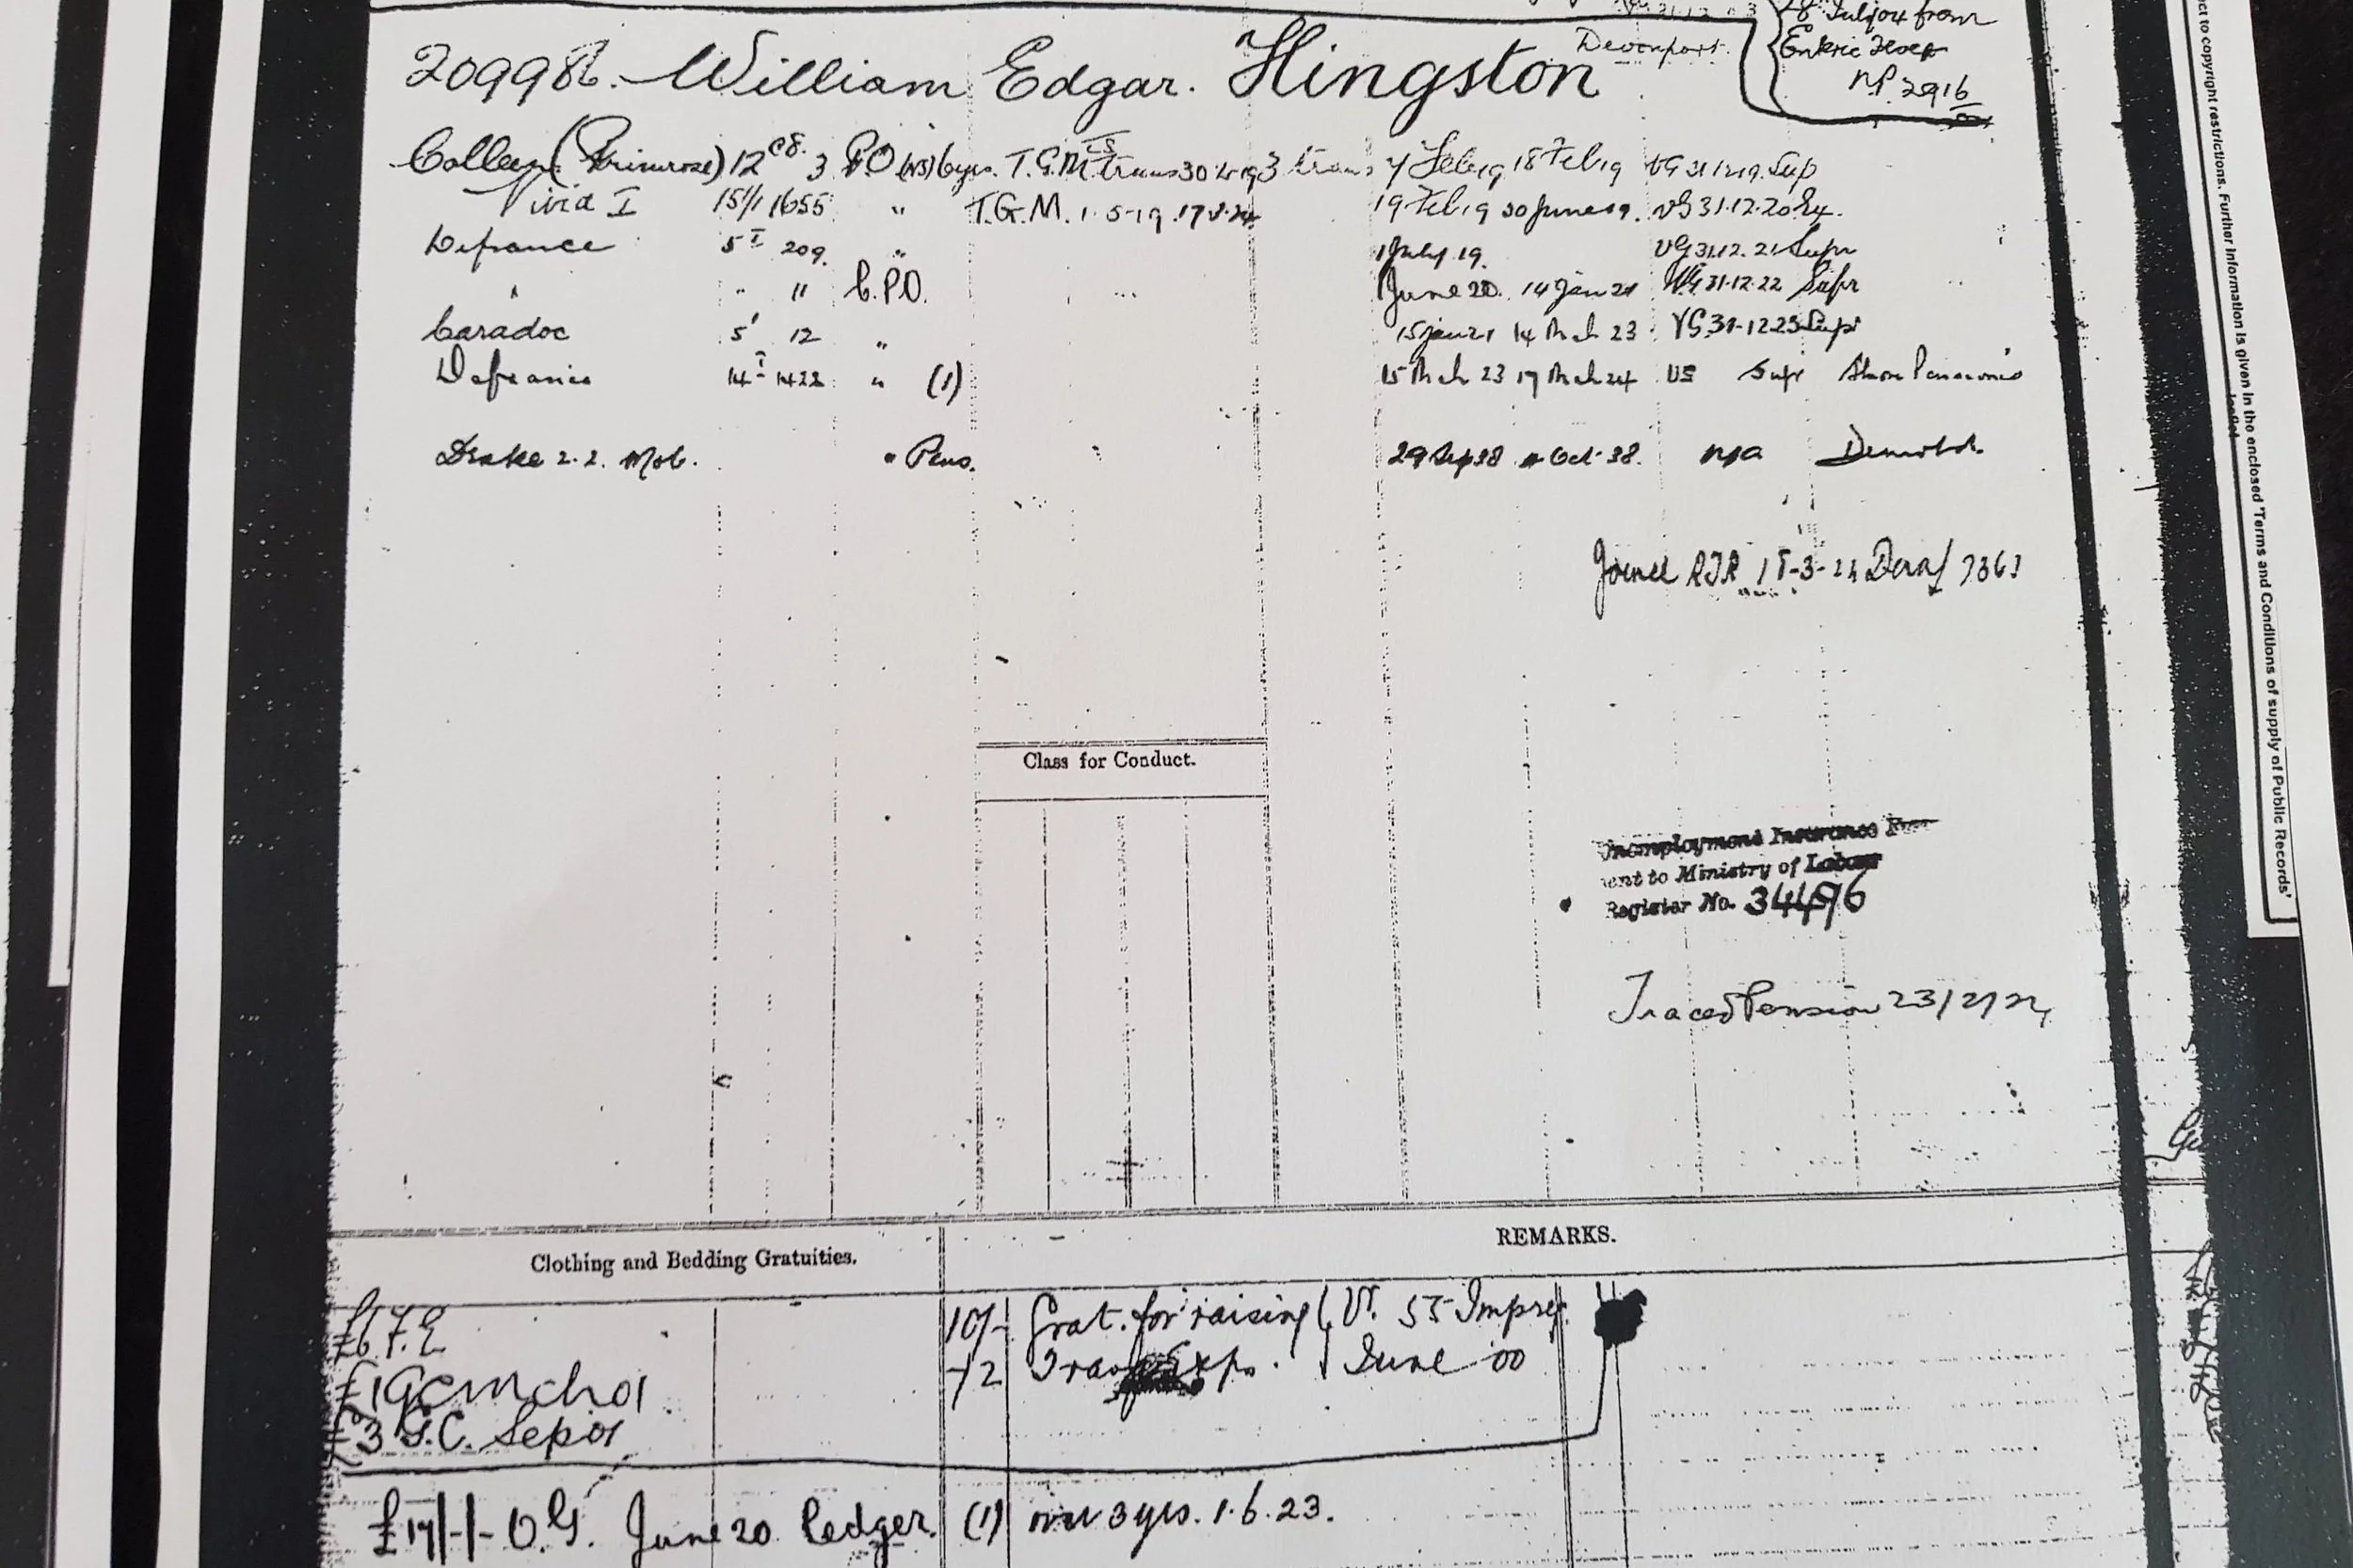 8 July 04 from
Devonport.
NP. 2916
209986. William Edgar. Hingston
Colleen (Primrose) 12 cd. 3 P.O (NS) 6 yrs. T.G.M. trans 30 4 19 3 trans 4 Feb 19 18 Feb 19 VG 31 12 19. Sup
Vivid I 15/1 1655 " T.G.M. 1.5-19 19 Feb 19 30 June 19. VG 31.12.20
Defiance 5 I 209. " 1 July 19. VG 31.12.21 Supr
" " " C.P.O. June 20. 14 Jan 21 VG 31.12.22 Supr
Caradoc 5' 12 " 15 Jan 21 14 Mch 23 VG.31-12-23 Supr
Defiance 14 I 1422 " (1) 15 Mch 23 17 Mch 24 VG Supr Shore Pensioned
Drake 2.2. Mob. " Pens. 29 Sep 38 Oct. 38. N/A Demobd.
Joined RFR 18-3-24 Dev 7363
Class for Conduct.
Unemployment Insurance
ent to Ministry of Labour
Register No. 34496
Traced Pension 23/2/24
Clothing and Bedding Gratuities. REMARKS.
10/- Grat. for raising V. 55 Impreg.
-/2 Exps. June 00
£3 G.C. Sep 01
£17/-/- O.G. June 20 Ledger. (1) over 3 yrs. 1.6.23.
ct to copyright restrictions. Further information is given in the enclosed 'Terms and Conditions of supply of Public Records'
leaflet